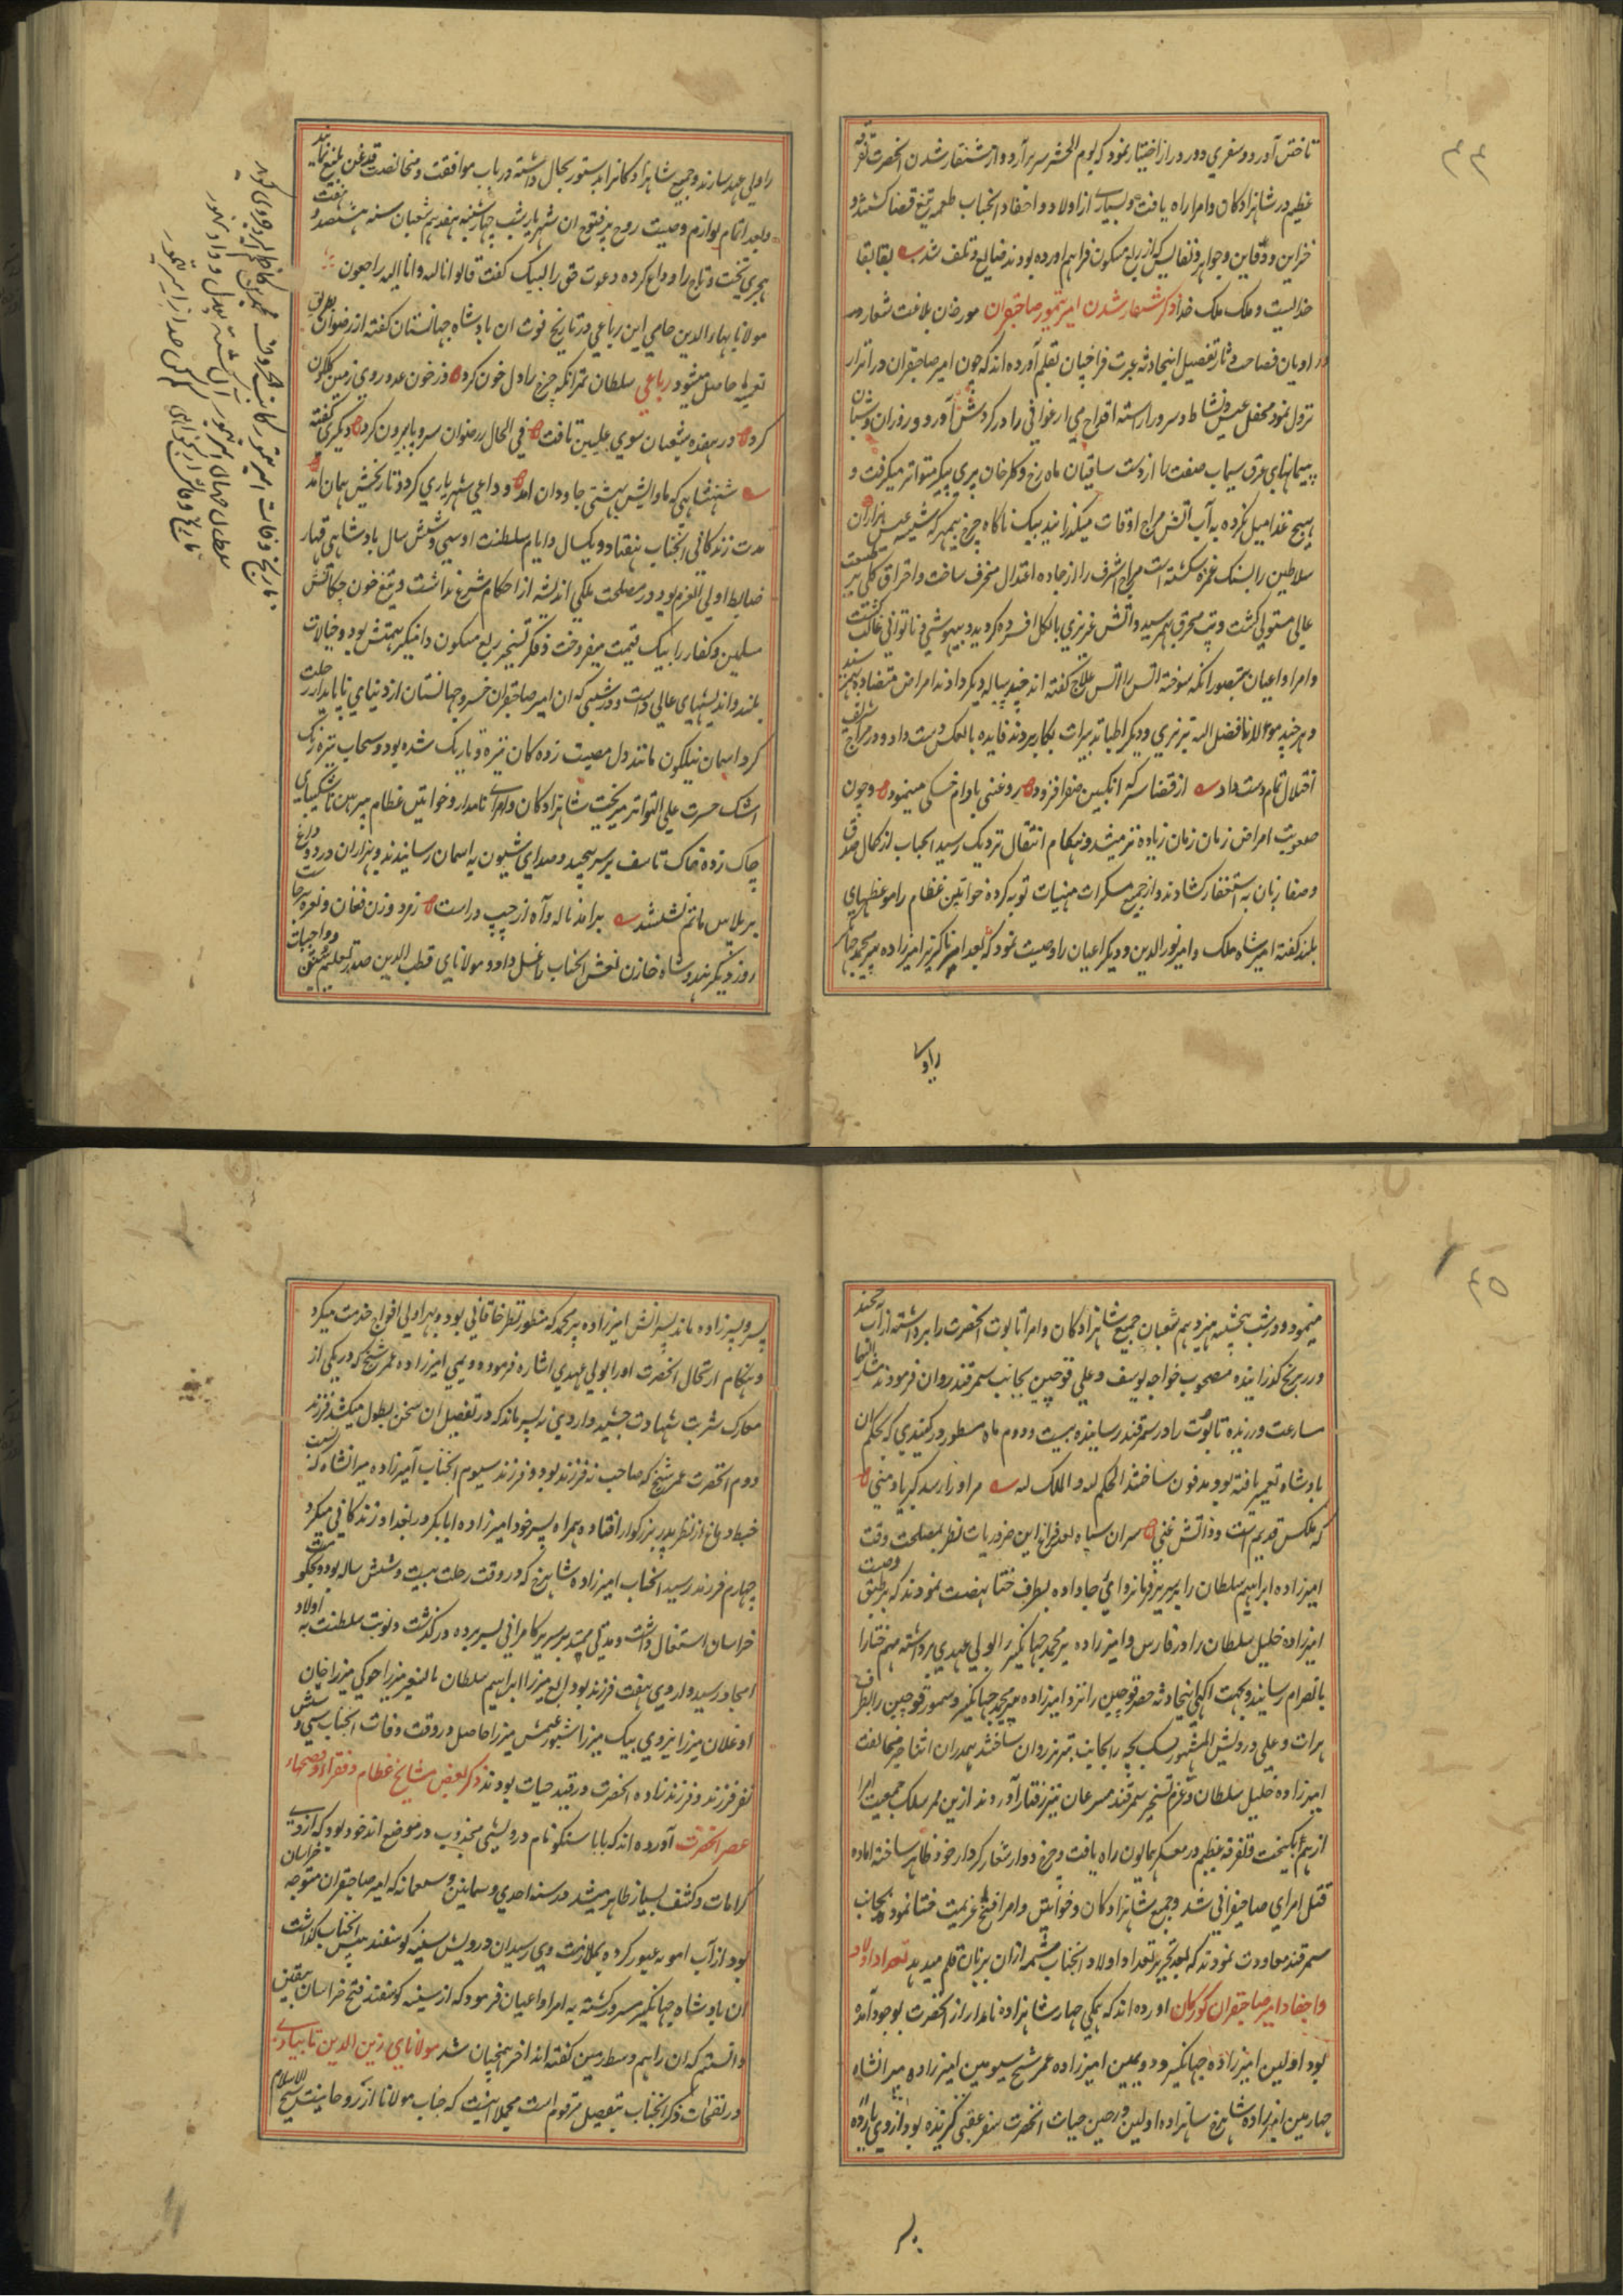 ٤٤
تاختن آورد و سفری دور و دراز اختیار نمود که یوم الحشر سر برآرد و از شنقار شدن آنحضرت تفرقه
عظیم در شاهزادگان و امرا راه یافت و بسیاری از اولاد و احفاد آنجناب طعمه تیغ قضا کشتند و
خزاین و دفاین و جواهر و نفایس که از ربع مسکون فراهم آورده بودند ضایع و تلف شد بقا بقا
خدایست و ملک ملک خدا ذکر شنقار شدن امیر تیمور صاحبقران مورخان بلاغت شعار و
راویان فصاحت دثار تفصیل اینحادثه عبرت فزا چنان بقلم آورده اند که چون امیر صاحبقران در اترار
نزول نمود محفل عیش و نشاط و سرور آراسته اقداح می ارغوانی را در کردش آورد و روزان و شبان
پیمانهای عرق سیماب صفت را از دست ساقیان ماه رخ و کلرخان پری پیکر متواتر میکرفت و
بهیچ غذا میل نکرده به آب آتش مزاج اوقات میکذرانید بیک ناکاه چرخ بیمهر که شیشه عیش هزاران
سلاطین را بسنک غمزه شکسته است مزاج اشرف را از جاده اعتدال منحرف ساخت و احراق کلی بر طبیعت
عالی مستولی کشت و تب محرق بهم رسید و آتش غریزی بالکل افسرده کردید و بیهوشی و ناتوانی غالب کشت
و امرا و اعیان بتصور آنکه سوخته آتس را آتس علاج کفته اند چند پیاله دیکر دادند امراض متضاده بهم رسید
و هر چند مولانا فضل الله تبریزی و دیکر اطبا تدبیرات بکار بردند فایده بالعکس دست داد و در مزاج شریف
اختلال تمام دست داد از قضا سرکه انکبین صفرا فزود روغن بادام خشکی مینمود و چون
صعوبت امراض زمان زمان زیاده تر میشد و هنکام انتقال نزدیک رسید آنجناب از کمال صدق
و صفا زبان به استغفار کشادند و از جمیع مسکرات منهیات توبه کرده خواتین عظام را موعظهای
بلند کفته امیر شاه ملک و امیر نورالدین و دیکر اعیان را وصیت نمود که بعد از من ناکزیر امیرزاده پیر محمد جهانکیر
راولی
را ولی عهد سازند و جمیع شاهزادکانرا بدستور بحال داشته در باب موافقت و مخالفت قدغن بلیغ نمایند
و بعد اتمام لوازم وصیت روح پر فتوح آن شهریار شب چهارشنبه هفدهم شعبان سنه هشتصد و هفت
هجری تخت و تاج را وداع کرده دعوت حق را لبیک کفت قالوا انا لله و انا الیه راجعون
مولانا بهاء الدین جامی این رباعی در تاریخ فوت آن بادشاه جهانستان کفته از رضوان بطریق
تعمیه حاصل میشود رباعی سلطان تمر آنکه چرخ را دل خون کرد وز خون عدو روی زمین کلکون
کرد در هفده شعبان سوی علیین تافت فی الحال ز رضوان سر و پا بیرون کرد و دیکری کفته
شهنشاهی که ماوایش بهشتی جاودان آمد وداعی شهریاری کرد و تاریخش همان آمد
مدت زندکانی آنجناب هفتاد و یکسال و ایام سلطنت او سی و شش سال بادشاهی قهار
ضابط اولی العزم بود در مصلحت ملکی اندیشه از احکام شرع نداشت و تیغ خون چکانش
مسلمین و کفار را بیک قیمت میفروخت و فکر تسخیر ربع مسکون دامنکیر همتش بود و خیالات
بلند و اندیشهای عالی داشت و در شبی که آن امیر صاحبقران خسرو جهانستان از دنیای ناپایدار رحلت
کرد آسمان نیلکون مانند دل مصیبت زده کان تیره و تاریک شده بود و سحاب تیره رنک
اشک حسرت علی التواتر میریخت شاهزادکان و امرای نامدار و خواتین عظام پیرهن شکیبایی
چاک زده خاک تاسف بر سر بیختند و صدای شیون به آسمان رسانیدند و هزاران درد و داغ
بر پلاس ماتم نشستند برآمد ناله و آه از چپ و راست ز مرد و زن فغان و نعره برخاست
روز دیکر هندو شاه خازن نعش آنجناب را غسل داد و مولانای قطب الدین صدر بتعلیم سنن و واجبات
تاریخ وفات امیر تیمور
سلطان
تاریخ وفات
٤٥
مینمود و در شب پنجشنبه هژدهم شعبان جمیع شاهزادکان و امرا تابوت آنحضرت را برداشته از آب خجند
در بر یخ کذرانیده مصحوب خواجه یوسف و علی قوچین بجانب سمرقند روان فرمودند
مسارعت ورزیده تابوت را در سمرقند رسانیده بیست و دوم ماه مسطور در کنبدی که بحکم آن
بادشاه تعمیر یافته بود مدفون ساختند الحکم لله و الملک له مر او را رسد کبریا و منی
که ملکش قدیم است و ذاتش غنی سران سپاه بعد فراغ این ضروریات نظر بمصلحت وقت
امیرزاده ابراهیم سلطان را بر سریر فرمانروائی جا داده بطرف ختا نهضت نمودند که بر طبق وصیت
امیرزاده خلیل سلطان را در فارس و امیرزاده پیر محمد جهانکیر را بولی عهدی برداشته مهم ختا را
بانصرام رسانیند و بجهت آکهی اینحادثه خضر قوچین را نزد امیرزاده پیر محمد جهانکیر و تیمور قوچین را بطرف
هرات و علی درویش المشهور بسک بچه را بجانب تبریز روان ساختند همدران اثنا خبر مخالفت
امیرزاده خلیل سلطان و عزم تسخیر سمرقند مسرعان تیزرفتار آوردند ازین ممر سلک جمعیت امرا
از هم بکسیخت و تفرقه عظیم در معسکر همایون راه یافت و چرخ دوار شعار کردار خود ظاهر ساخته آماده
قتل امرای صاحبقرانی شد و جمیع شاهزادکان و خواتین و امرا فسخ عزیمت ختا نموده بجانب
سمرقند معاودت نمودند که بعد تحریر تعداد اولاد آنجناب شمه ازان بزبان قلم میدهد تعداد اولاد
و احفاد امیر صاحبقران کورکان آورده اند که همکی چهار شاهزاده نامدار از آنحضرت بوجود آمده
بود اولین امیرزاده جهانکیر و دویمین امیرزاده عمر شیخ سیومین امیرزاده میرانشاه
چهارمین امیرزاده شاهرخ شاهزاده اولین در حین حیات آنحضرت سفر عقبی کزیده بود از وی یازده
پسر
پسر و پسرزاده ماند پسرانش امیرزاده پیر محمد که منظور نظر خاقانی بود و بهراولی افواج خدمت میکرد
و هنکام ارتحال آنحضرت او را بولی عهدی اشاره فرموده دویمی امیرزاده عمر شیخ که در یکی از
معارک شربت شهادت چشید و از وی نه پسر ماند که در تفصیل آن سخن بطول میکشد فرزند
دوم آنحضرت عمر شیخ که صاحب نه فرزند بود و فرزند سیوم آنجناب امیرزاده میرانشاه که بسبب
خبط دماغ از نظر پدر بزرکوار افتاده همراه پسر خود امیرزاده ابابکر در بغداد زندکانی میکرد
چهارم فرزند رسید آنجناب امیرزاده شاهرخ که در وقت رحلت بیست و شش ساله بود و بحکومت
خراسان اشتغال داشت و مدتی ممتد بر سریر کامرانی بسر برده در کذشت و نوبت سلطنت به اولاد
امجاد رسید و از وی هفت فرزند بود الغ میرزا ابراهیم سلطان بایسنغر میرزا جوکی میرزا جان
اوغلان میرزا یزدی بیک میرزا سیورغتمش میرزا حاصل در وقت وفات آنجناب سی و شش
نفر فرزند و فرزندزاده آنحضرت در قید حیات بودند ذکر بعض مشایخ عظام و فقراء و فصحاء
عصر آنحضرت آورده اند که بابا سنکو نام درویشی مجذوب در موضع اندخود بود که از وی
کرامات و کشف بسیار ظاهر میشد در سنه احدی و ثمانین و سبعمائه که امیر صاحبقران متوجه خراسان
بود از آب امویه عبور کرد و بملازمت وی رسید آن درویش سینه کوسفند پیش آنجناب کذاشت
آن بادشاه جهانکیر مسرور کشته به امرا و اعیان فرمود که از سینه کوسفند فتح خراسان بیقین
دانستم که آن را هم وسط زمین کفته اند آخر همچنان شد مولانای زین الدین تایبادی
در نفحات ذکر آنجناب بتفصیل مرقوم است مجملا اینست که جناب مولانا از روحانیت شیخ الاسلام